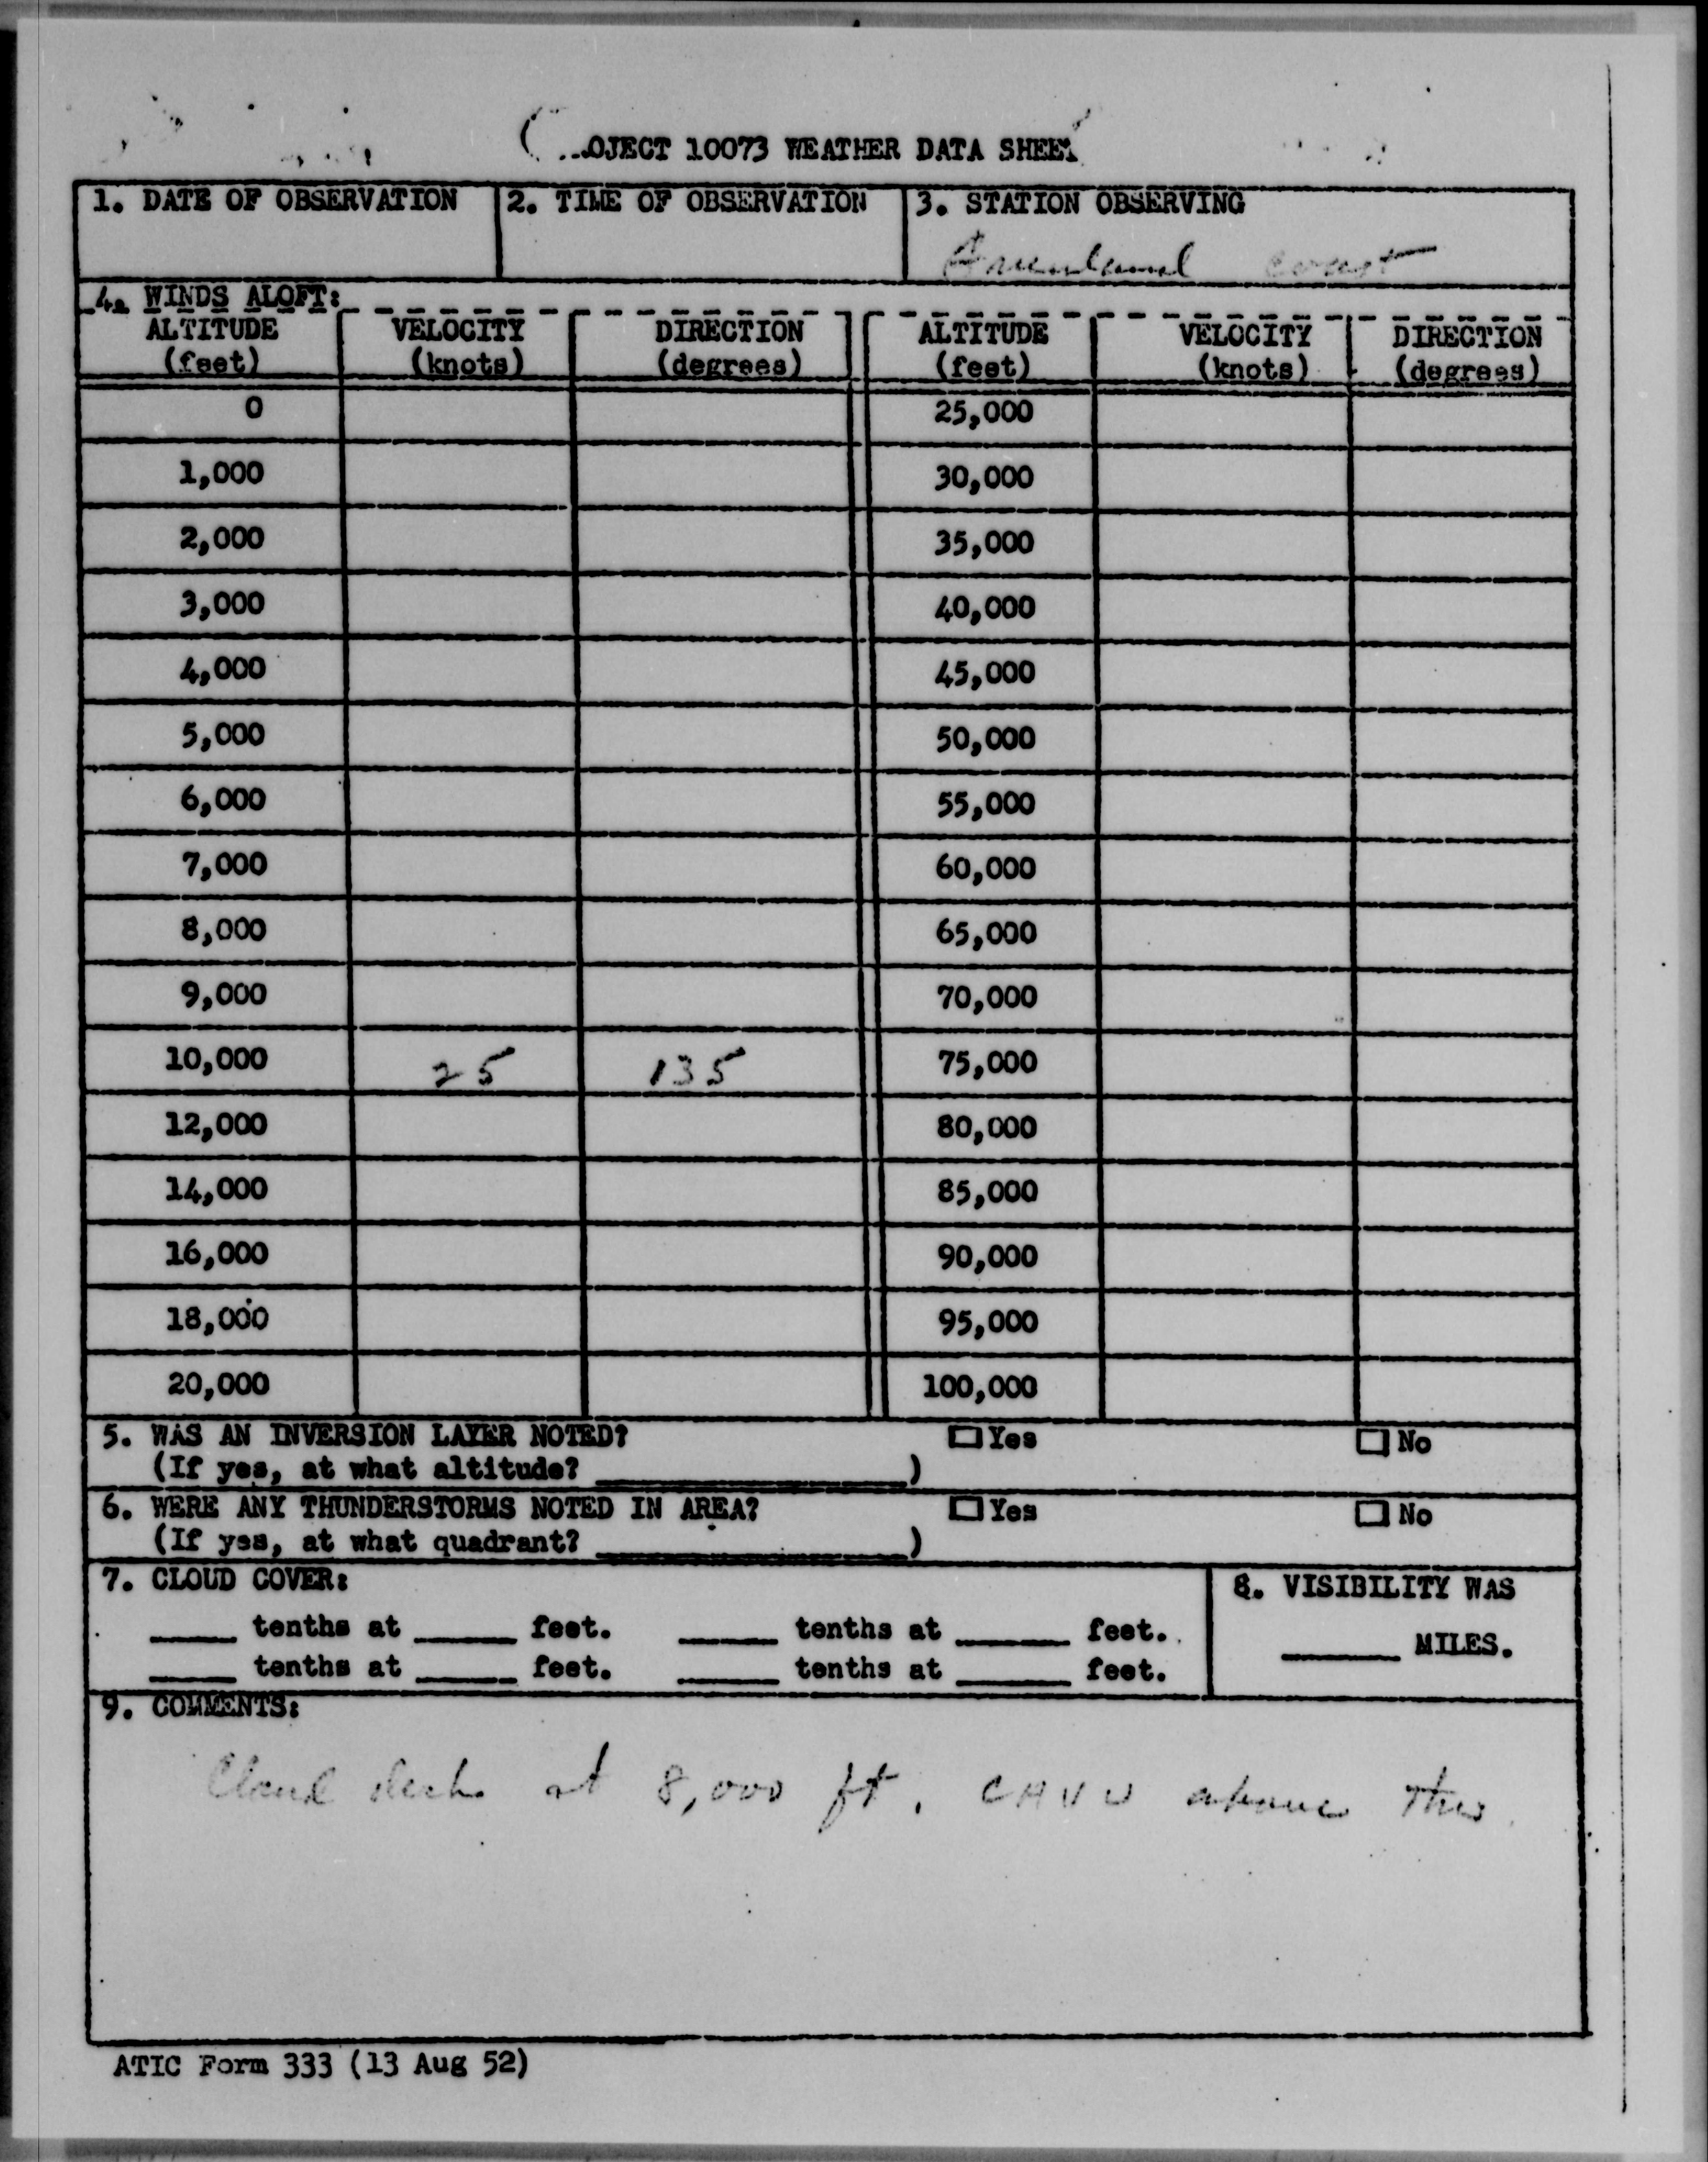 OJECT 10073 WEATHER DATA SHEET
1. DATE OF OBSERVATION 2. TIME OF OBSERVATION 3. STATION OBSERVING
Greenland coast
4. WINDS ALOFT:
ALTITUDE VELOCITY DIRECTION ALTITUDE VELOCITY DIRECTION
(feet) (knots) (degrees) (feet) (knots) (degrees)
0 25,000
1,000 30,000
2,000 35,000
3,000 40,000
4,000 45,000
5,000 50,000
6,000 55,000
7,000 60,000
8,000 65,000
9,000 70,000
10,000 25 135 75,000
12,000 80,000
14,000 85,000
16,000 90,000
18,000 95,000
20,000 100,000
5. WAS AN INVERSION LAYER NOTED? Yes No
(If yes, at what altitude? )
6. WERE ANY THUNDERSTORMS NOTED IN AREA? Yes No
(If yes, at what quadrant? )
7. CLOUD COVER: 8. VISIBILITY WAS
tenths at feet. tenths at feet.
MILES.
tenths at feet. tenths at feet.
9. COMMENTS:
Cloud deck at 8,000 ft. CAVU above this.
ATIC Form 333 (13 Aug 52)